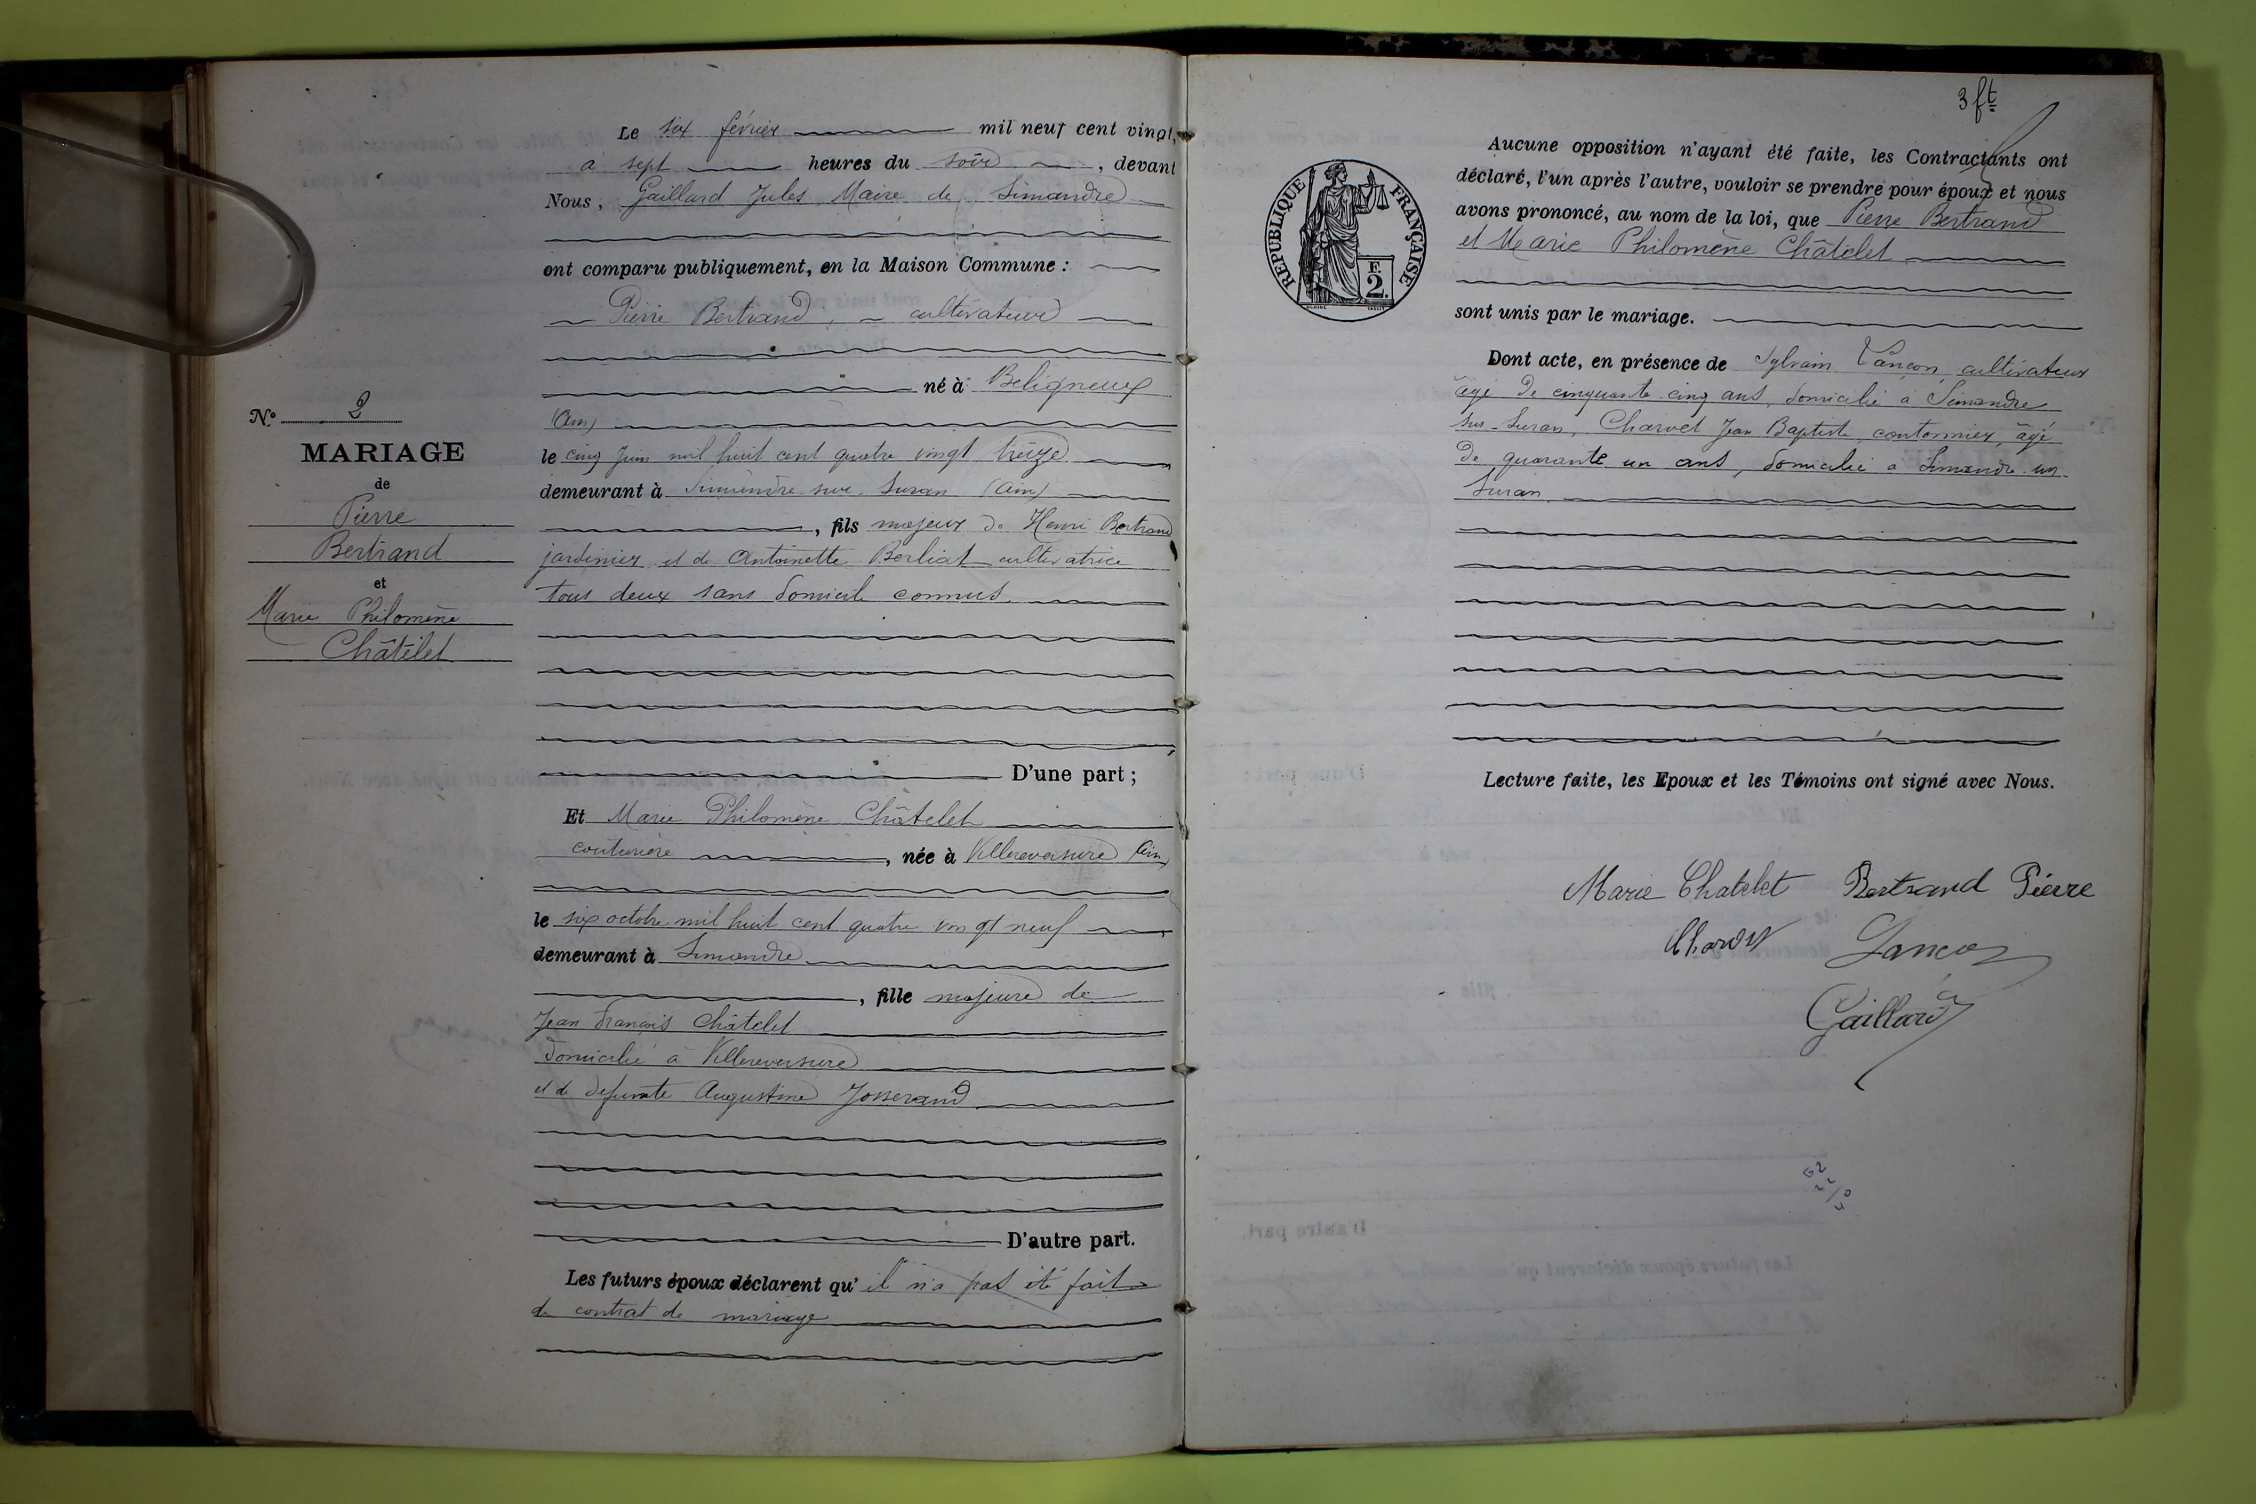 N° 2
MARIAGE
de
Pierre
Bertrand
et
Marie Philomène
Châtelet
Le six février mil neuf cent vingt,
a sept heures du soir, devant
Nous, Gaillard Jules Maire de Simandre
ont comparu publiquement, en la Maison Commune :
Pierre Bertrand, cultivateur
né à Beligneux
(Ain)
le cinq Juin mil huit cent quatre vingt treize
demeurant à Simandre sur Suran (Ain)
, fils majeur de Henri Bertrand
jardinier et de Antoinette Berliat cultivatrice
tous deux sans domicile connus
D'une part ;
Et Marie Philomène Châtelet
couturière, née à Villereversure Ain
le six octobre mil huit cent quatre vingt neuf
demeurant à Simandre
, fille majeure de
Jean François Châtelet
domicilié à Villereversure
et de defunte Augustine Josserand
D'autre part.
Les futurs époux déclarent qu' il n'a pas été fait
de contrat de mariage
3 ft
REPUBLIQUE FRANÇAISE
F.
2.
Aucune opposition n'ayant été faite, les Contractants ont
déclaré, l'un après l'autre, vouloir se prendre pour époux et nous
avons prononcé, au nom de la loi, que Pierre Bertrand
et Marie Philomène Châtelet
sont unis par le mariage.
Dont acte, en présence de Sylvain Lançon, cultivateur
âgé de cinquante cinq ans, domicilié à Simandre
sur Suran, Charvet Jean Baptiste, cantonnier, âgé
de quarante un ans, domicilié à Simandre sur
Suran
Lecture faite, les Epoux et les Témoins ont signé avec Nous.
Marie Chatelet Bertrand Pierre
Charvet Lançon
Gaillard